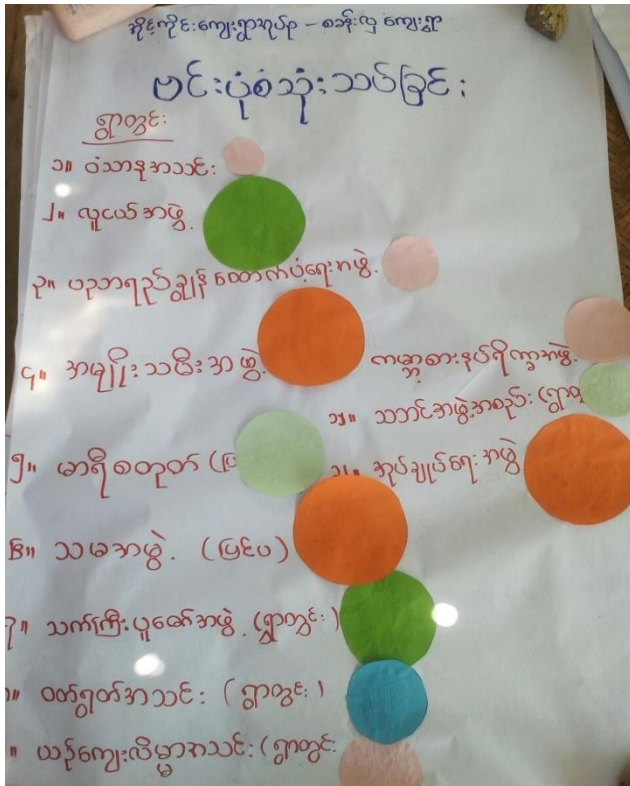 အိုင်ကိုင်းကျေးရွာအုပ်စု - စခန်းလှ ကျေးရွာ
ဗင်းပုံစံသုံးသပ်ခြင်း
ရွာတွင်း
၁။ ဝံသာနုအသင်း
၂။ လူငယ်အဖွဲ့
၃။ ပညာရည်ချွန် ထောက်ပံ့ရေးအဖွဲ့
၄။ အမျိုးသမီးအဖွဲ့
ကမ္ဘာစားနပ်ရိက္ခာအဖွဲ့
၁၅။ သဘင်အဖွဲ့အစည်း (ရွာတွ
၅။ မာရီစတုတ် (ပြ
အုပ်ချုပ်ရေးအဖွဲ့
၆။ သမအဖွဲ့. (ပြင်ပ)
၇။ သက်ကြီးပူဇော်အဖွဲ့. (ရွာတွင်း)
၈။ ဝတ်ရွတ်အသင်း (ရွာတွင်း)
။ ယဉ်ကျေးလိမ္မာအသင်း (ရွာတွင်း